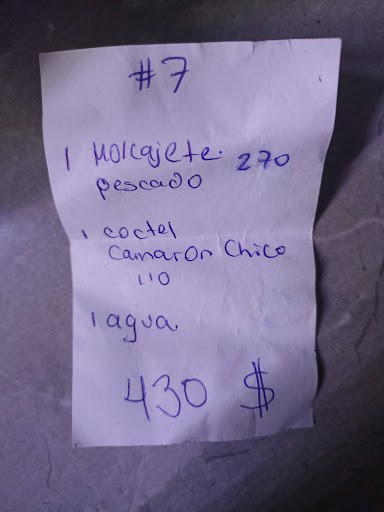 #7
1 Molcajete. 270
pescado
1 coctel
Camaron Chico
110
1 agua.
430 $